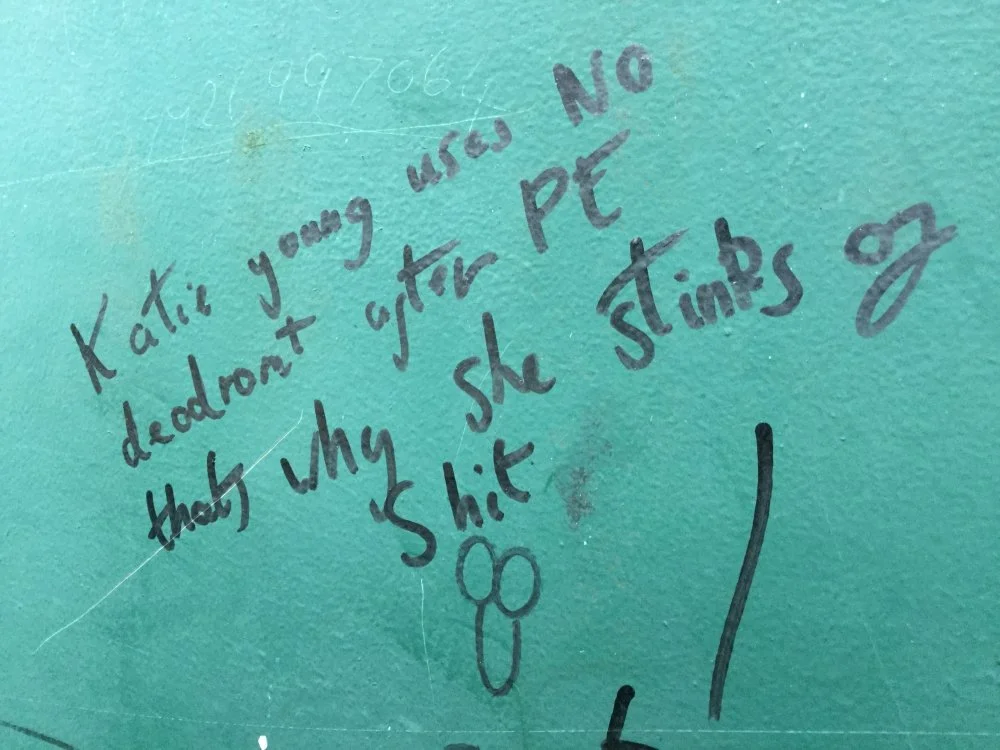 Katie young uses NO
deodront after PE
thats why she stinks of
shit